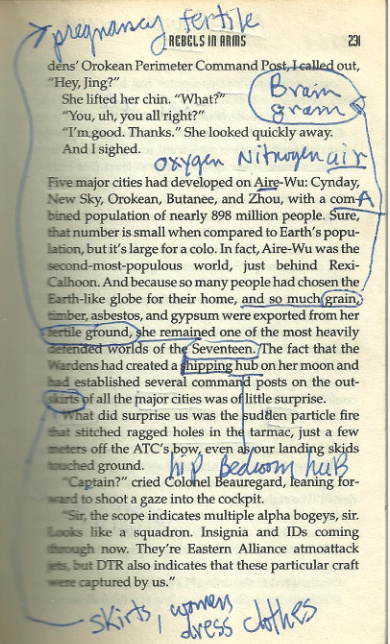 pregnancy fertile
REBELS IN ARMS 231
dens' Orokean Perimeter Command Post, I called out,
"Hey, Jing?"
She lifted her chin. "What?"
"You, uh, you all right?"
"I'm good. Thanks." She looked quickly away.
And I sighed.
Brain
gram
oxygen Nitrogen air
Five major cities had developed on Aire-Wu: Cynday,
New Sky, Orokean, Butanee, and Zhou, with a com-
A
bined population of nearly 898 million people. Sure,
that number is small when compared to Earth's popu-
lation, but it's large for a colo. In fact, Aire-Wu was the
second-most-populous world, just behind Rexi-
Calhoon. And because so many people had chosen the
Earth-like globe for their home, and so much grain,
timber, asbestos, and gypsum were exported from her
fertile ground, she remained one of the most heavily
defended worlds of the Seventeen. The fact that the
Wardens had created a shipping hub on her moon and
had established several command posts on the out-
skirts of all the major cities was of little surprise.
What did surprise us was the sudden particle fire
that stitched ragged holes in the tarmac, just a few
meters off the ATC's bow, even as our landing skids
touched ground.
hip Bedroom hub
"Captain?" cried Colonel Beauregard, leaning for-
ward to shoot a gaze into the cockpit.
"Sir, the scope indicates multiple alpha bogeys, sir.
Looks like a squadron. Insignia and IDs coming
through now. They're Eastern Alliance atmoattack
jets, but DTR also indicates that these particular craft
were captured by us."
skirts, women
dress clothes